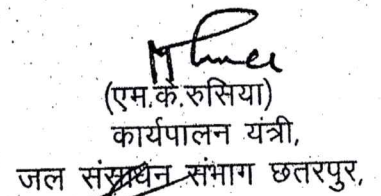 (एम.के.रुसिया)
कार्यपालन यंत्री,
जल संसाधन संभाग छतरपुर,